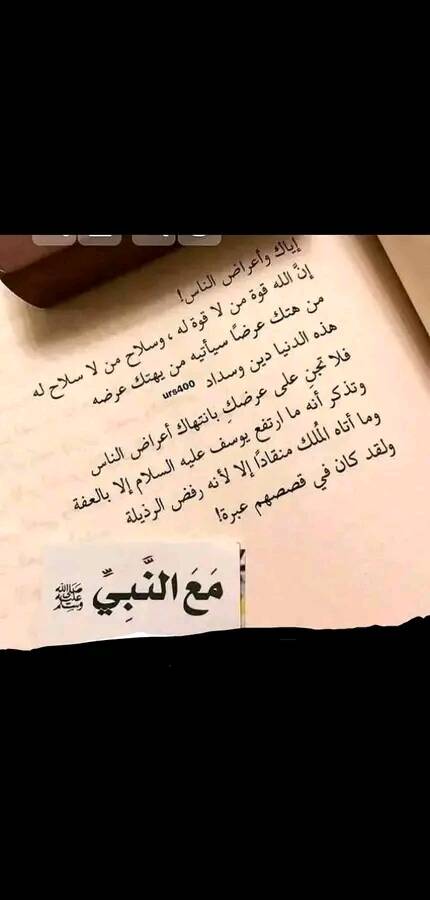 إياك وأعراض الناس!
إنَّ الله قوة من لا قوة له، وسلاح من لا سلاح له
من هتك عرضًا سيأتيه من يهتك عرضه
هذه الدنيا دين وسداد urs400
فلا تجنِ على عرضكِ بانتهاك أعراض الناس
وتذكر أنه ما ارتفع يوسف عليه السلام إلا بالعفة
وما أتاه المُلك منقادًا إلا لأنه رفض الرذيلة
ولقد كان في قصصهم عبرة!
مَعَ النَّبِيِّ ﷺ